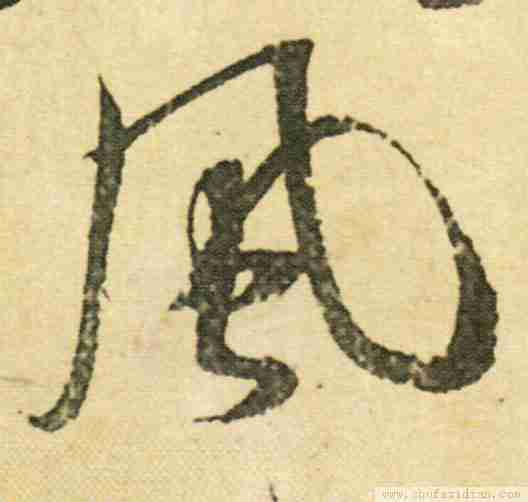 風
www.shufazidian.com